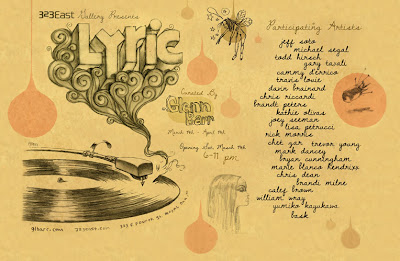 323East Gallery Presents
Lyric
Curated By
Glenn
Barr
March 14th - April 14th
Opening Sat. March 14th
6-11 pm
glbarr.com
323east.com
Participating Artists
jeff soto
michael segal
todd hirsch
gary taxali
cammy derrico
travis louie
davin brainard
chris riccardi
brandt peters
kathie olivas
joey seeman
lisa petrucci
rick morris
chet zar
trevor young
mark dancey
bryan cunningham
marie blanco hendrixx
chris dean
brandi milne
calef brown
william wray
yumiko kayukawa
bask